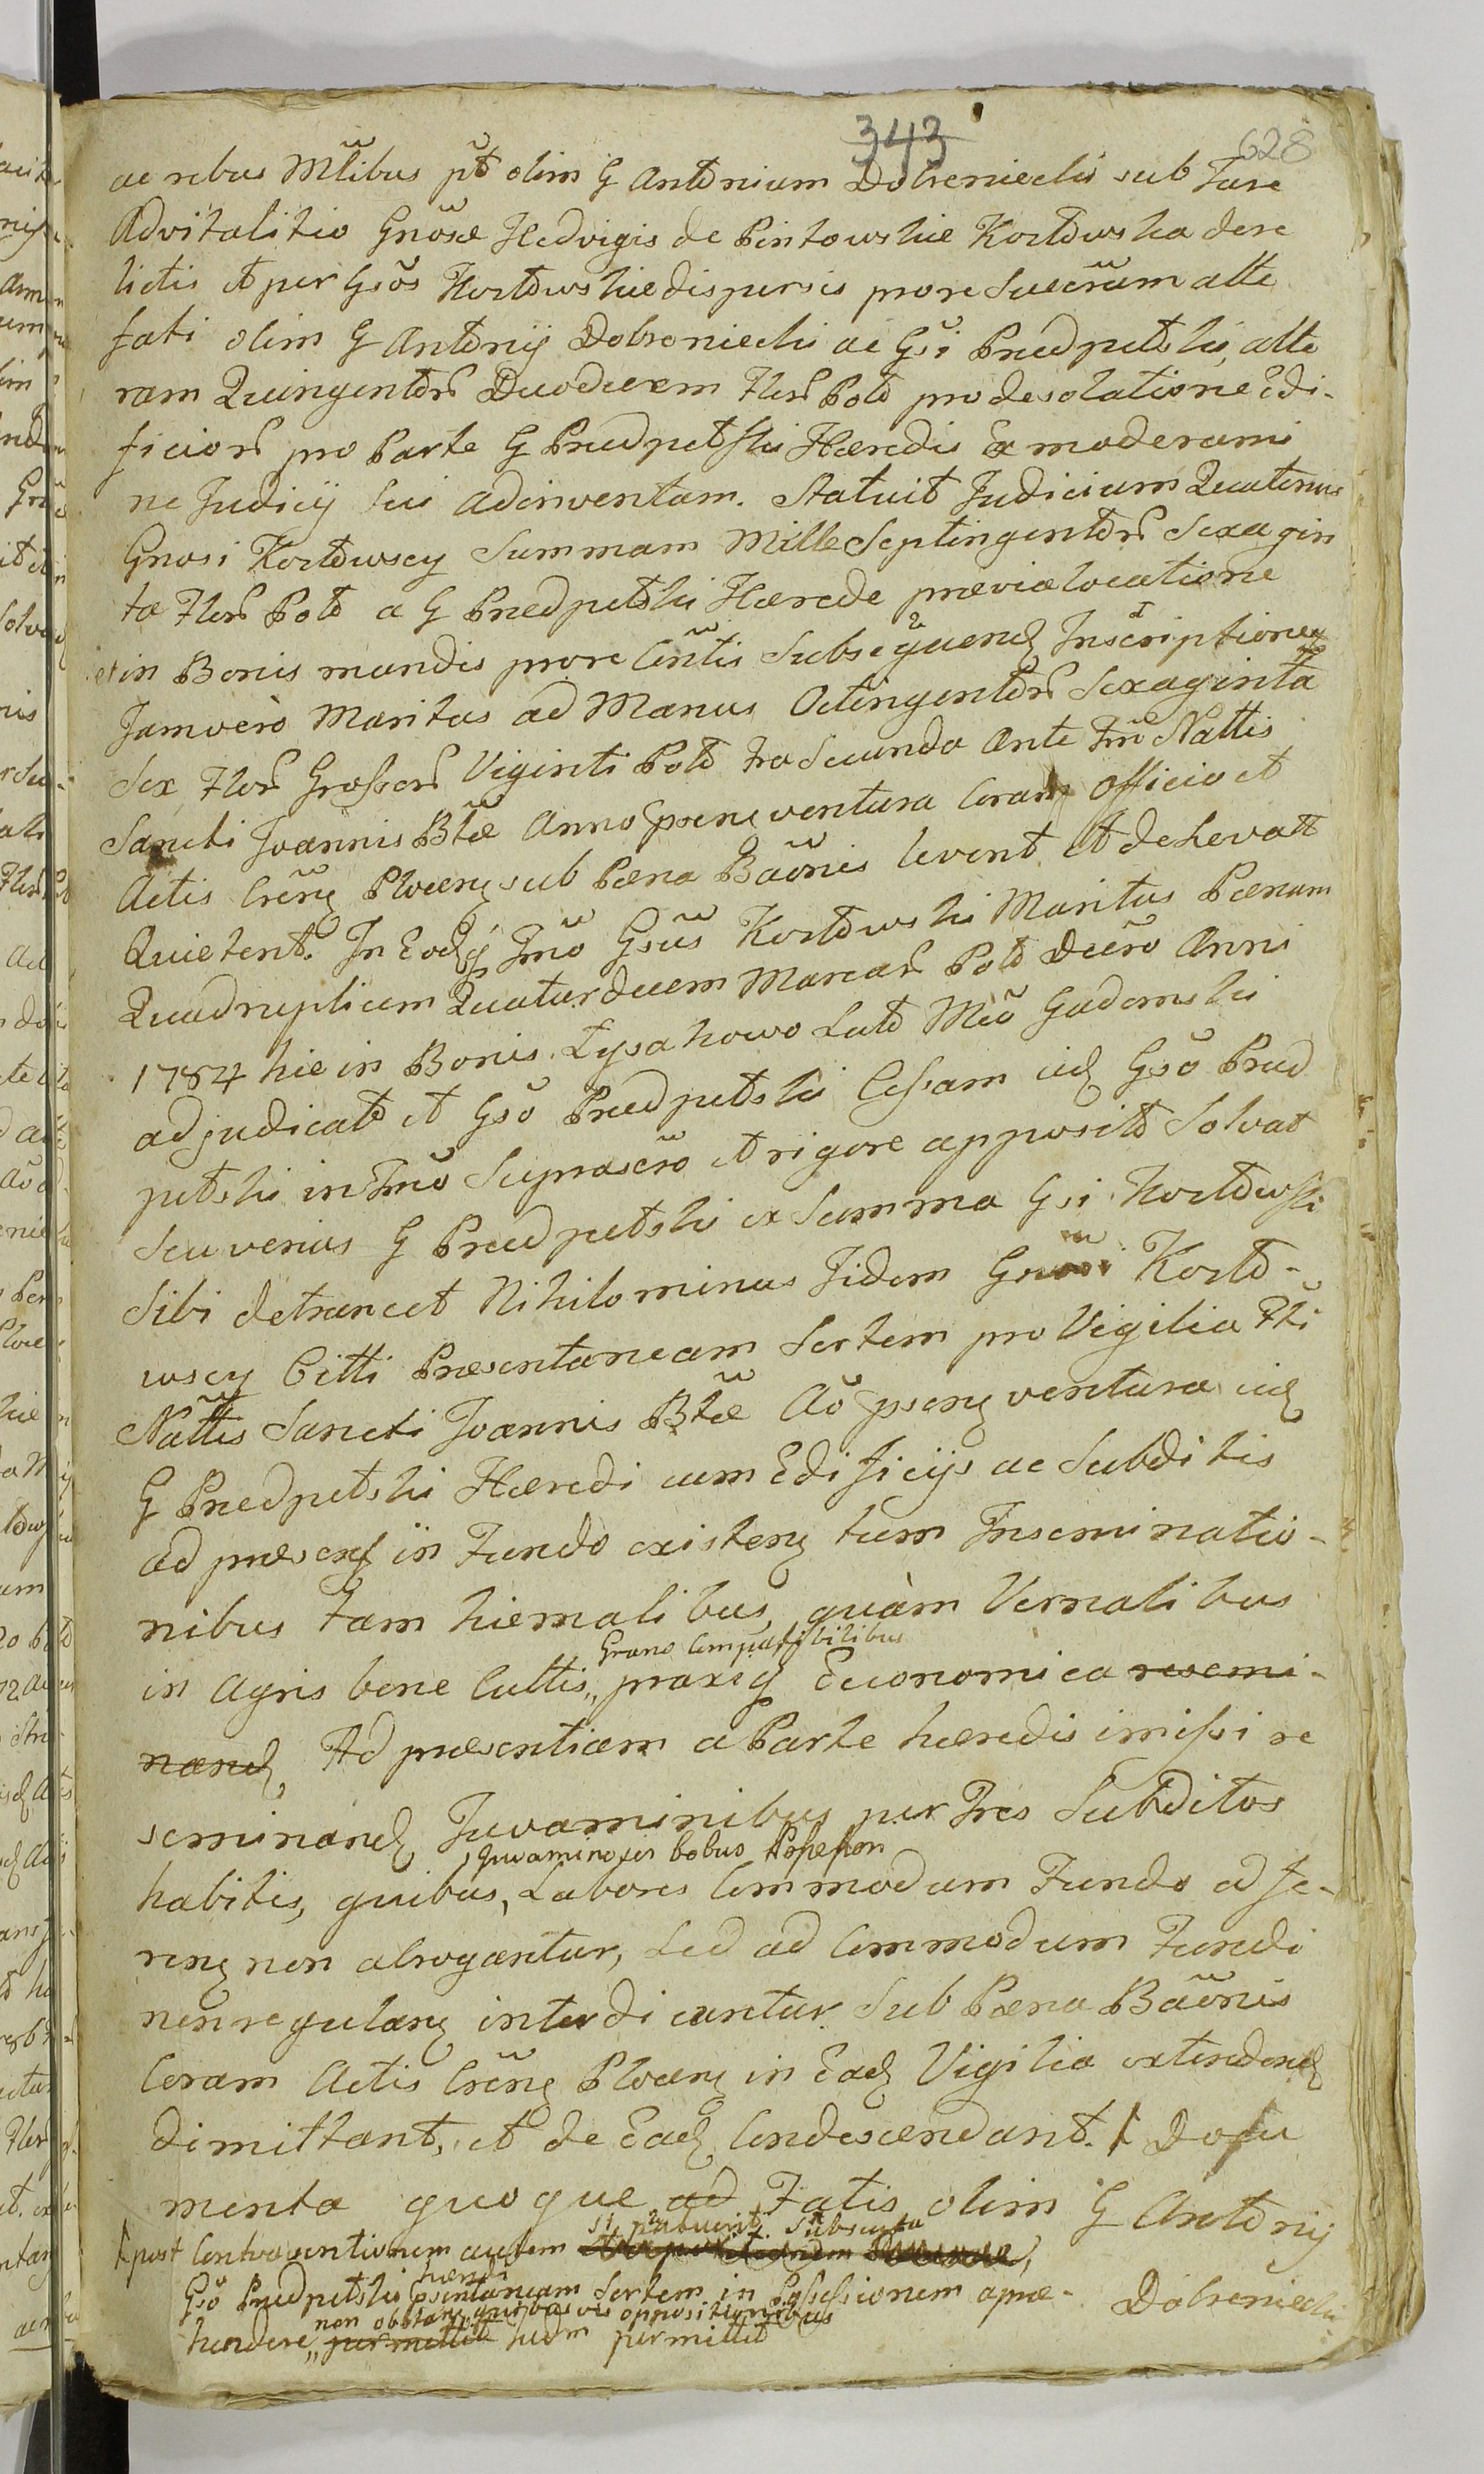 343
628
ac rebus Mlibus pt olim G Antonium Dobroniecki sub Jure
Advitalitio Gnosæ Hedvigis de Pintowskie Kortowska dere
lictis et per Gsos Kortowskie dispersis prore Suecrum atte
fati olim G Antonij Dobroniecki ac Gsi Prædpetski, alte
ram Quingentor Duodecem Flor Pol pro desolatione Edi-
ficior pro Parte G Prædpetski Hæredis Ex moderami
ne Judicij Sui adinventam. Statuit Judicium Quatenus
Gnosi Kortowscy Summam Mille Septingentor Sexagin
ta Flor Pol a G Prædpetski Hærede prævia locatione
et in Bonis mundis prore Cintis Subsequend Inscriptiones
Jamvero Maritus ad Manus Octingentor Sexaginta
Sex Flor Grossor Viginti Pol fra Secunda Ante Frm Nattis
Sancti Joannis Btæ Anno pseng ventura Coram Officio et
Actis Creng Ploceng sub Pæna Baonis levent et de Levatt
Quietent. In Eodq Fmo Gsus Kortowski Maritus Pænam
Quadruplicem Quatuordecem Marcar Pol Decro Anni
1784 hic in Bonis Łysakowo Lato Mco Gadomski
adjudicat et Gso Prædpetski Cessam eid Gso Præd
petski in Fmo Suprascro et rigore apposito Solvat
Seu verius G Prædpetski ex Summa Gsi Kortowski
Sibi detrancet Nihilominus Iidem Gnosi Korto-
wscy Citti Præsentaneam Sortem pro Vigilia Fti
Nattis Sancti Joannis Btæ Ao pseng ventura eid
G Prædpetski Hæredi cum Edificijs ac Subditis
ad præsens in Fundo existeng tum Inseminatio-
nibus tam hiemalibus, quàm Vernalibus
Grano Compatibilibus
in Agris bene Cultis,, praxi q Economica resemi-
nand Ad præsentiam a Parte hæredis imissi re
seminand Juvaminibus per Tres Subditos
Juvamino sex bobus
habitis, quibus, Labores Commodum Fundo adfe-
reng non abrogantur, Sed ad Commodum Fundi
non regulang interdicantur Sub Pæna Baonis
Coram Actis Creng Ploceng in Ead Vigilia extendend
dimittant, et de Ead Condescendant. Docu
menta quoque ad Fatis olim G Antonij
si habuerit subsecuta
post Contrasentionem autem
hæredi
Gso Prædpetski psentaneam Sortem in Possessionem appræ-
non obstang quibusvis oppositionibus
hendere,, permittit permittit
Dobroniecki